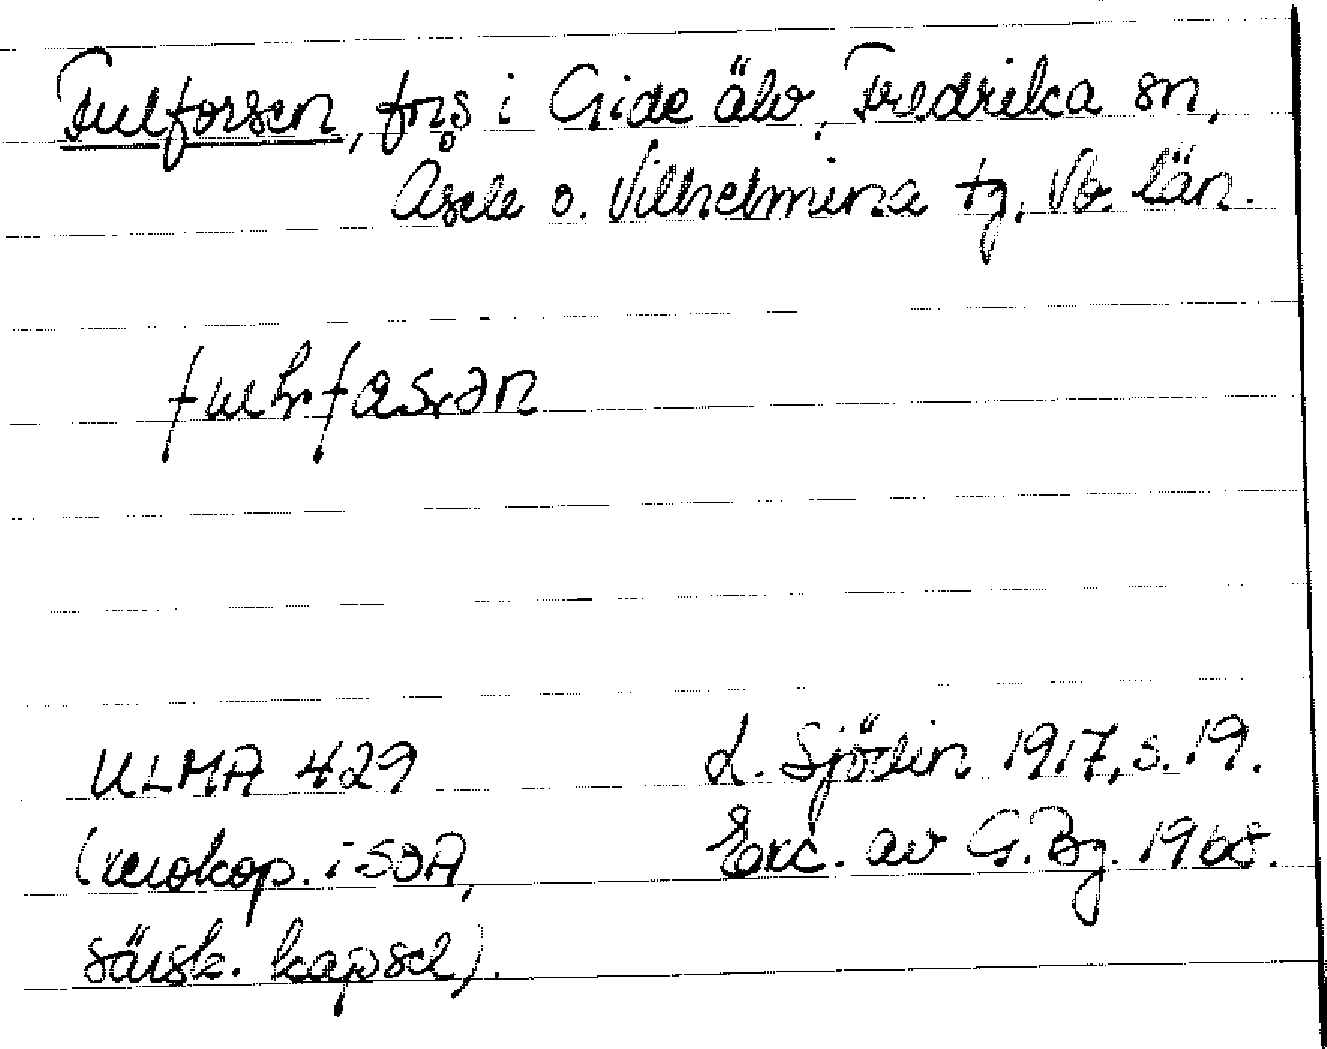 Fulforsen, fors i Gide älv, Fredrika sn,
Åsele o. Vilhelmina tg, Vb. län.
ULMA 429
(xerokop. i SOA,
särsk. kapsel).
L. Sjödin 1917, s. 19.
Exc. av G. Bg. 1968.